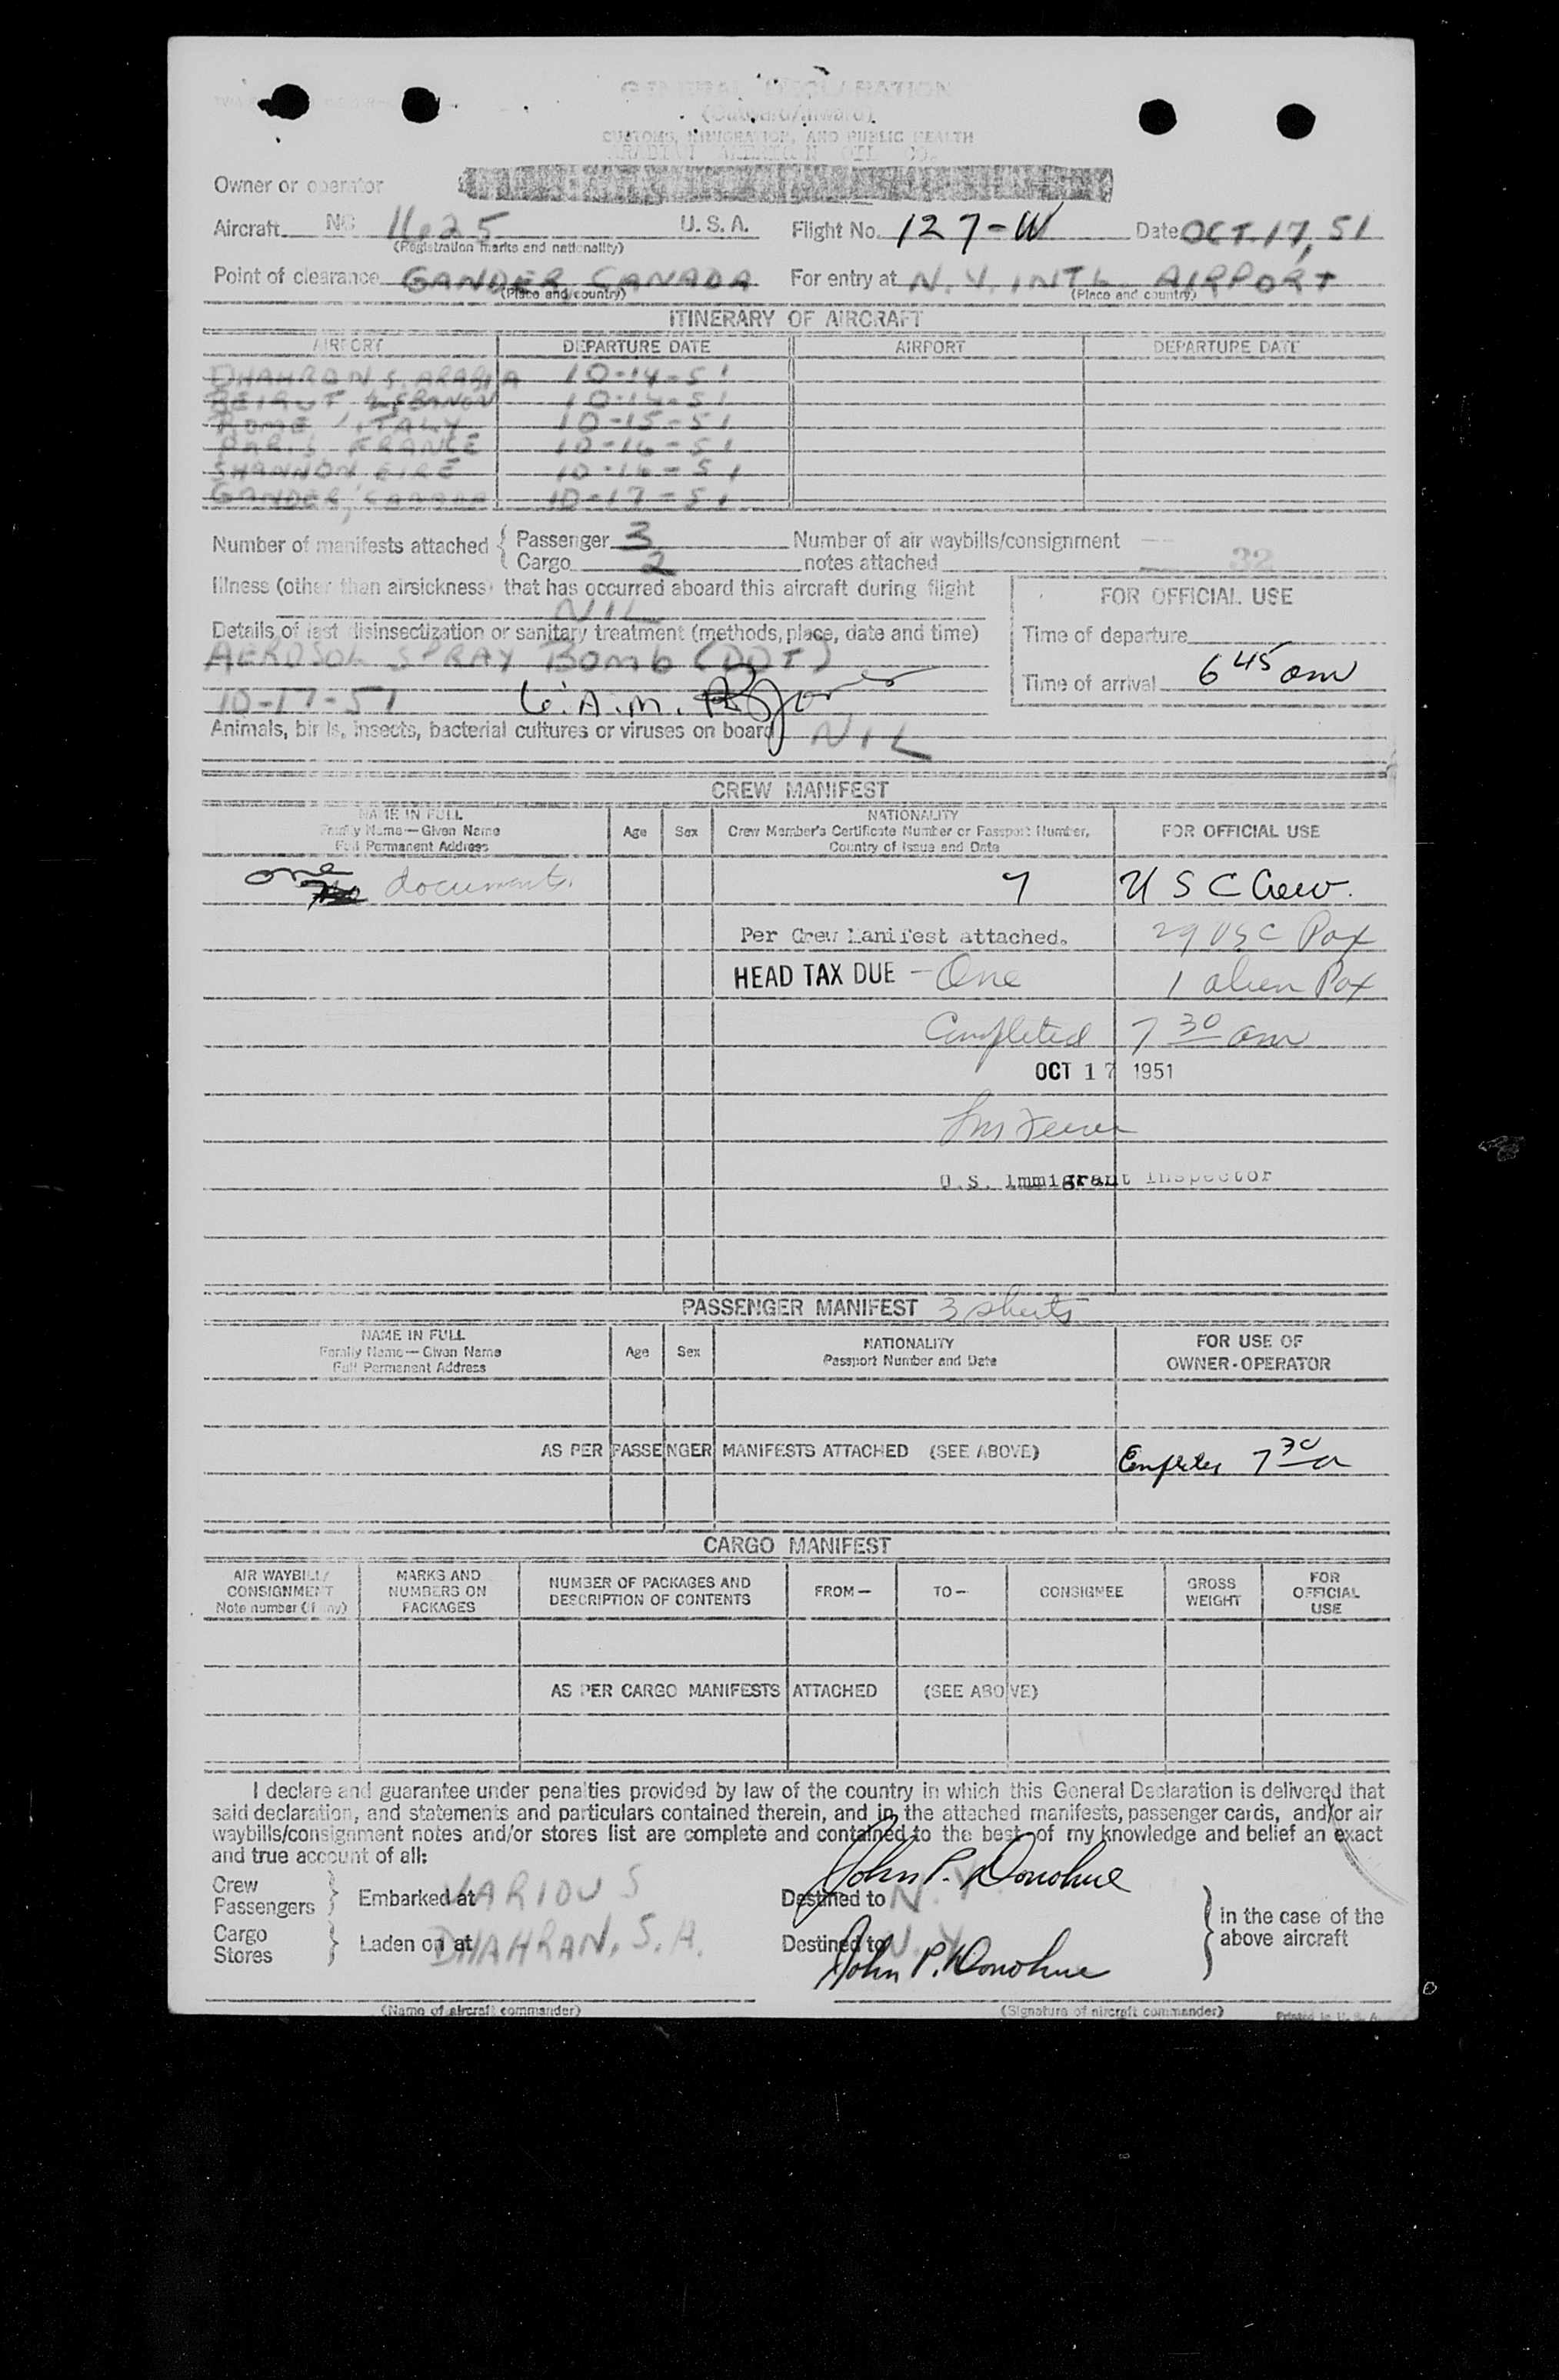 GENERAL DECLARATION
(Outward/Inward)
CUSTOMS, IMMIGRATION, AND PUBLIC HEALTH
ARABIAN AMERICAN OIL CO.
Owner or operator
Aircraft NC 1625 U. S. A. Flight No. 127-W Date OCT. 17, 51
(Registration marks and nationality)
Point of clearance GANDER CANADA For entry at N.Y. INTL AIRPORT
(Place and country) (Place and country)
ITINERARY OF AIRCRAFT
AIRPORT DEPARTURE DATE AIRPORT DEPARTURE DATE
DHAHRAN S. ARABIA 10-14-51
BEIRUT, LEBANON
ROME, ITALY 10-15-51
PARIS FRANCE 10-16-51
SHANNON EIRE 10-16-51
GANDER, CANADA 10-17-51
Number of manifests attached { Passenger 3 Number of air waybills/consignment
Cargo 2 notes attached 32
Illness (other than airsickness) that has occurred aboard this aircraft during flight
NIL
FOR OFFICIAL USE
Details of last disinsectization or sanitary treatment (methods, place, date and time)
Time of departure
AEROSOL SPRAY BOMB (DDT)
Time of arrival 6 45 am
10-17-51
Animals, birds, insects, bacterial cultures or viruses on board NIL
CREW MANIFEST
NAME IN FULL
Family Name—Given Name
Full Permanent Address
Age Sex
NATIONALITY
Crew Member's Certificate Number or Passport Number,
Country of Issue and Date
FOR OFFICIAL USE
one documents. 7 U S C Crew.
Per Crew Manifest attached. 29 USC Pax
HEAD TAX DUE - One 1 alien Pax
Completed 7 30 am
OCT 17 1951
U.S. Immigrant Inspector
PASSENGER MANIFEST 3 sheets
NAME IN FULL
Family Name—Given Name
Full Permanent Address
Age Sex
NATIONALITY
Passport Number and Date
FOR USE OF
OWNER-OPERATOR
AS PER PASSENGER MANIFESTS ATTACHED (SEE ABOVE) 7 30 a
CARGO MANIFEST
AIR WAYBILL/
CONSIGNMENT
Note number (if any)
MARKS AND
NUMBERS ON
PACKAGES
NUMBER OF PACKAGES AND
DESCRIPTION OF CONTENTS
FROM— TO— CONSIGNEE
GROSS
WEIGHT
FOR
OFFICIAL
USE
AS PER CARGO MANIFESTS ATTACHED (SEE ABOVE)
I declare and guarantee under penalties provided by law of the country in which this General Declaration is delivered that
said declaration, and statements and particulars contained therein, and in the attached manifests, passenger cards, and/or air
waybills/consignment notes and/or stores list are complete and contained to the best of my knowledge and belief an exact
and true account of all:
John P. Donohue
Crew
Passengers } Embarked at VARIOUS Destined to N.Y.
Cargo
Stores } Laden on at DHAHRAN, S.A. Destined to N.Y.
} in the case of the
above aircraft
John P. Donohue
(Name of aircraft commander) (Signature of aircraft commander) Printed in U. S. A.